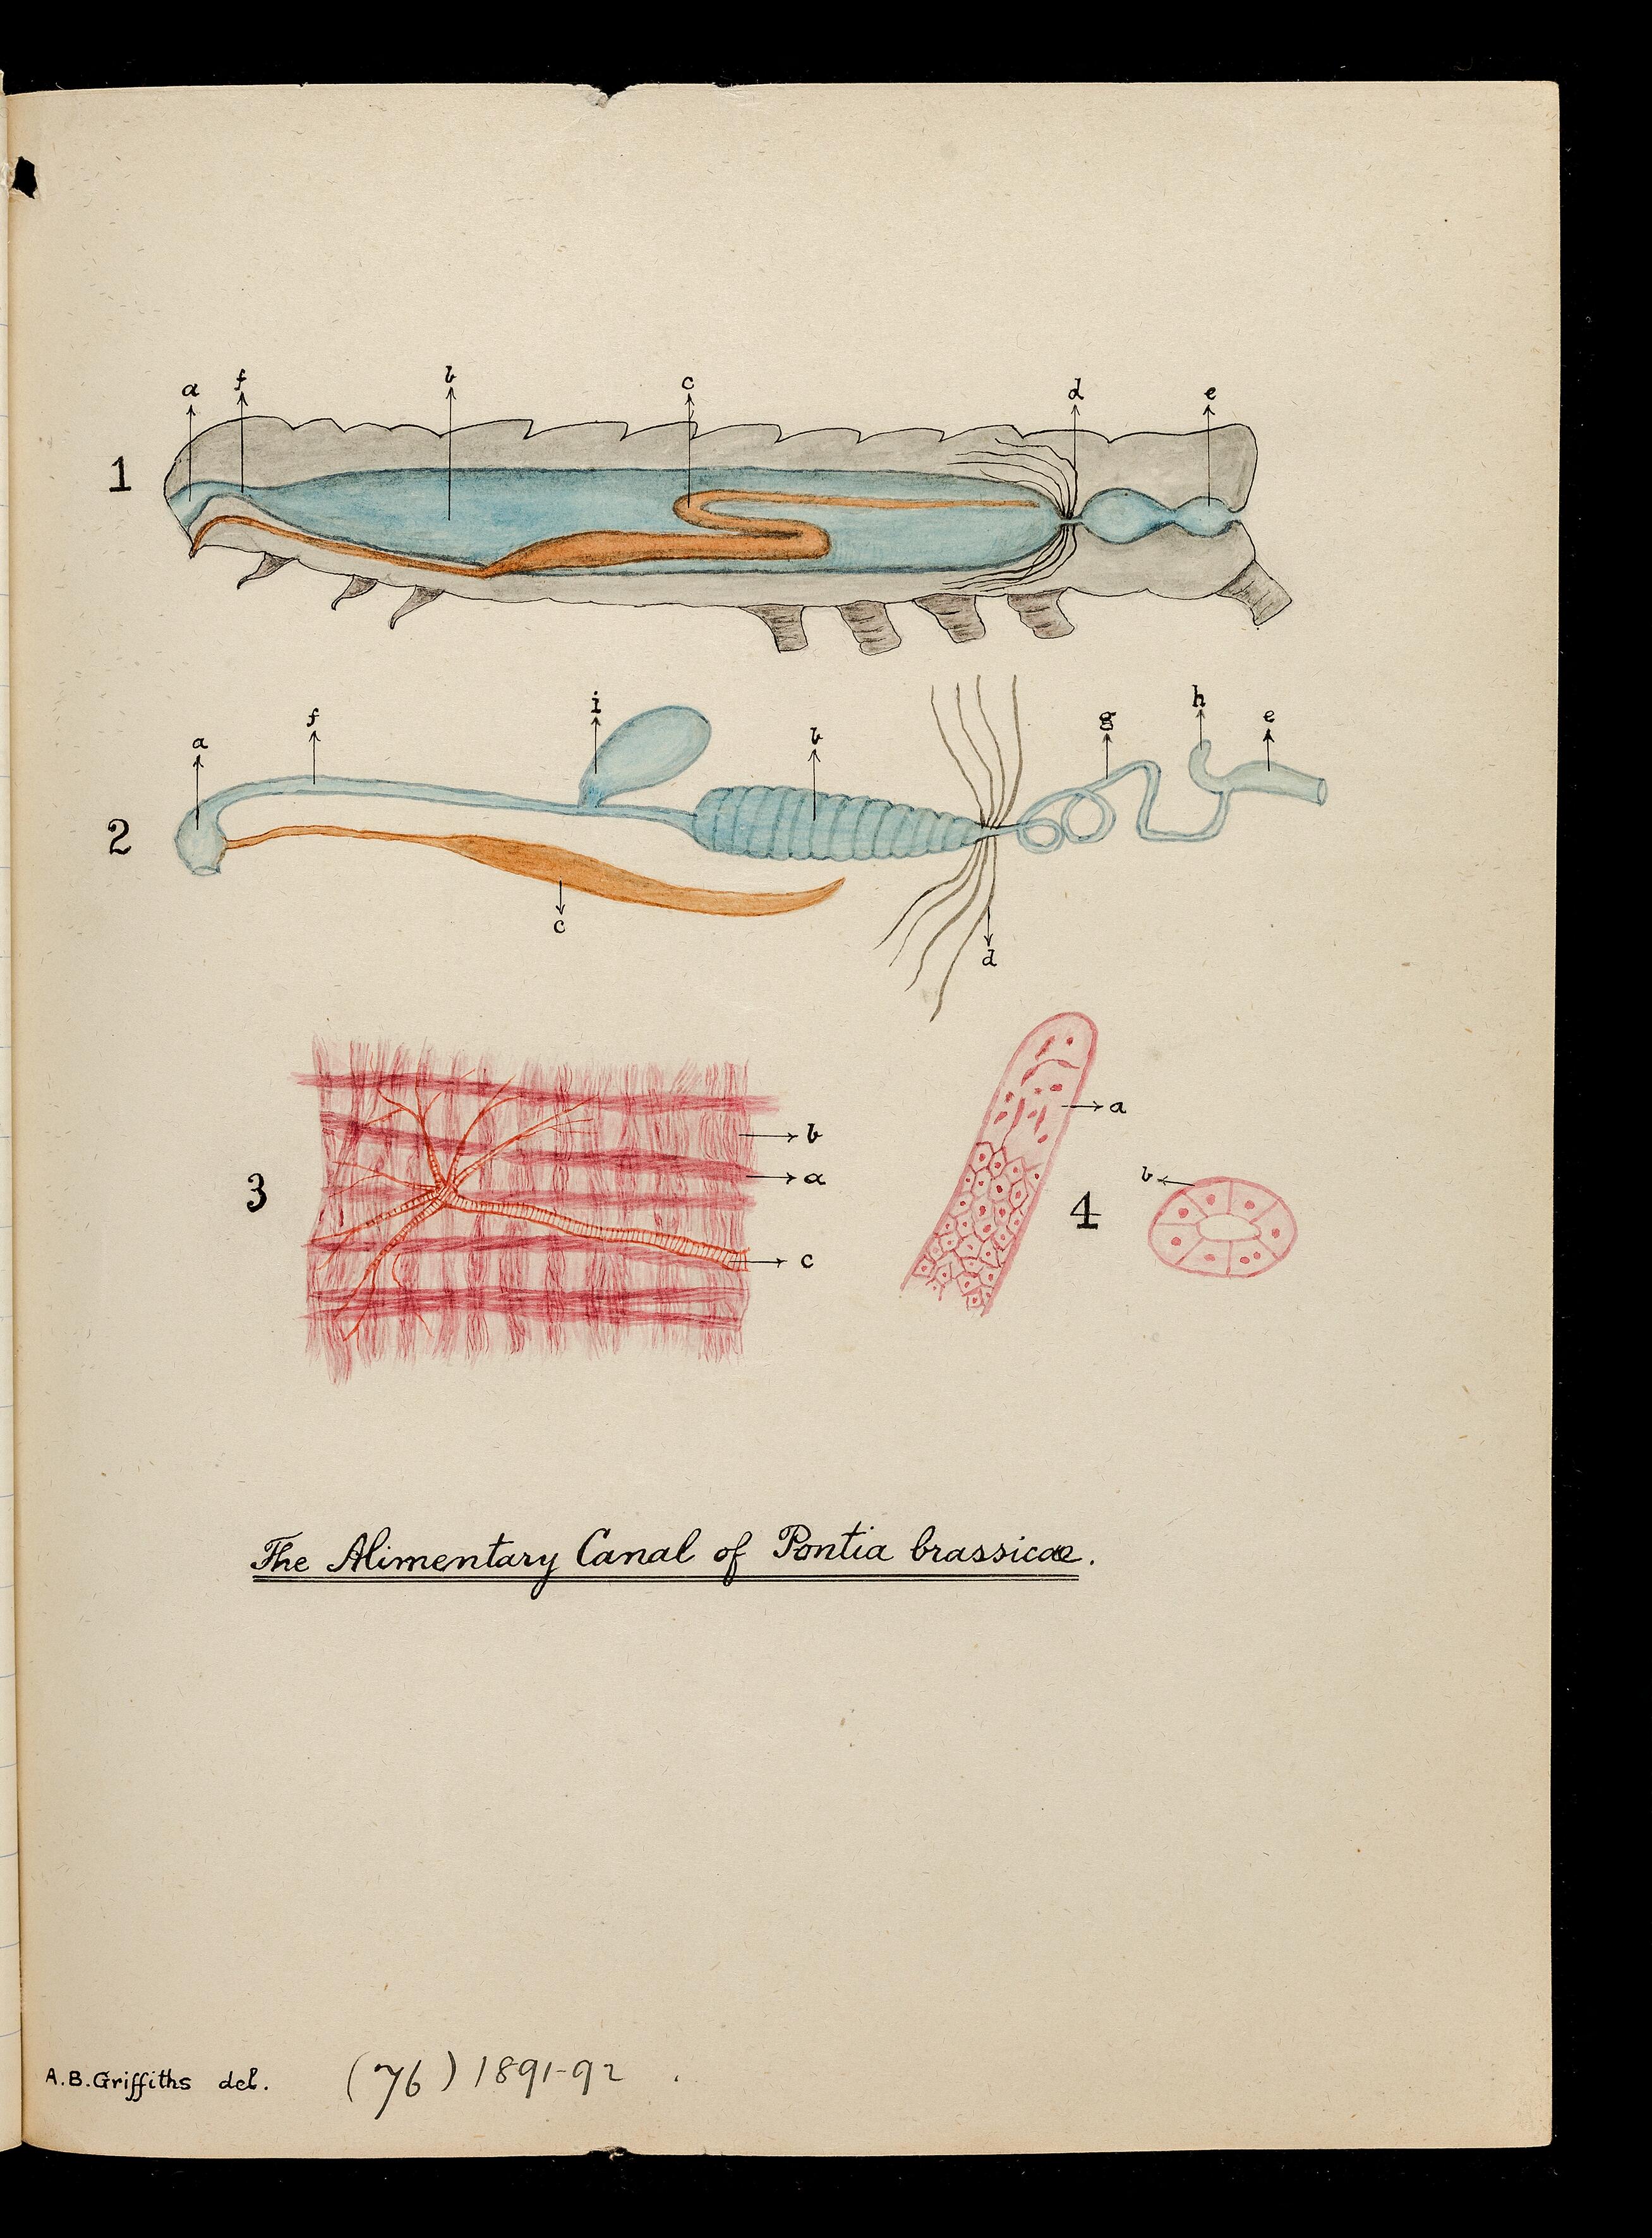 a f b c d e
1
i h e
f g
a b
2
c
d
a
b
b
a
3 4
c
The Alimentary Canal of Pontia brassicae.
A.B.Griffiths del. (76) 1891-92